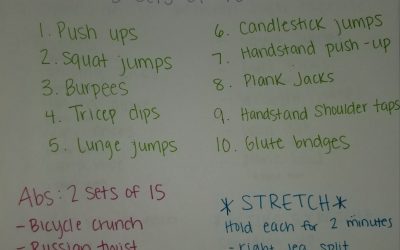 1. Push ups
2. Squat jumps
3. Burpees
4. Tricep dips
5. Lunge jumps
6. Candlestick jumps
7. Handstand push-up
8. Plank Jacks
9. Handstand Shoulder taps
10. Glute bridges
Abs: 2 sets of 15
- Bicycle crunch
- Russian twist
* STRETCH *
Hold each for 2 minutes
- right leg split